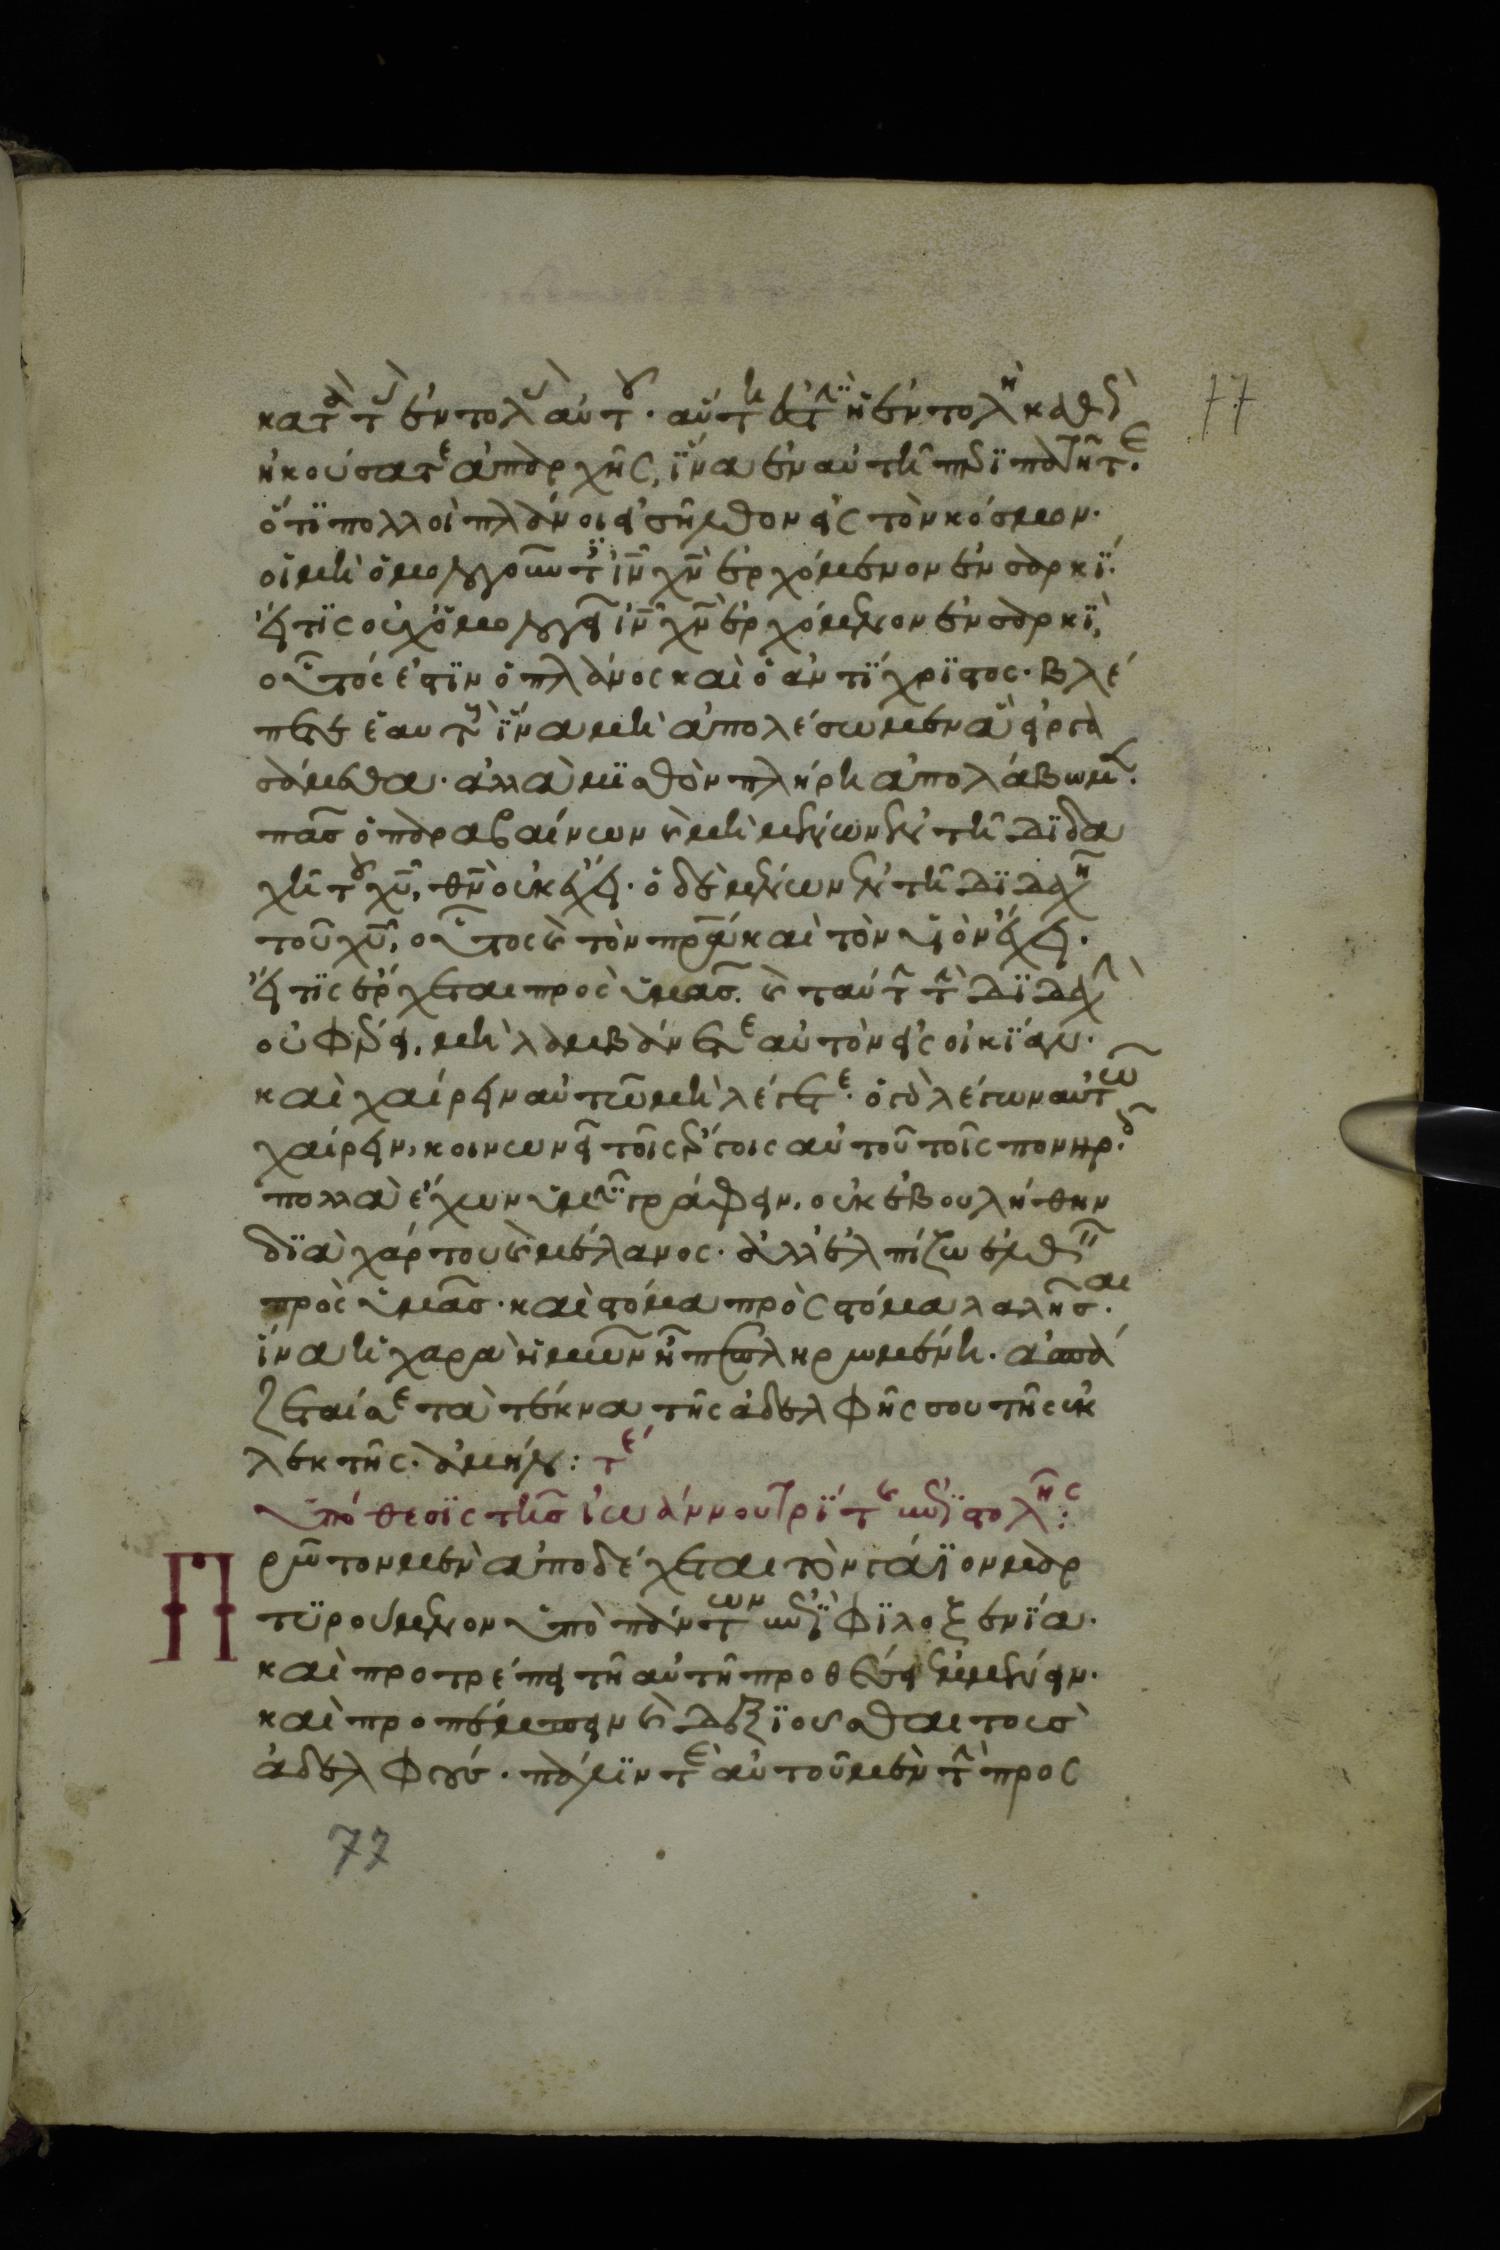 κατὰ τὰς ἐντολὰς αὐτοῦ. αὕτη ἐστὶν ἡ ἐντολὴ καθὼς
77
ἠκούσατε ἀπαρχῆς, ἵνα ἐν αὐτῆ περιπατῆτε.
ὅτι πολλοὶ πλάνοι εἰσῆλθον εἰς τὸν κόσμον.
οἱ μὴ ὁμολογοῦντες ἰν̅ χν̅ ἐρχόμενον ἐν σαρκί.
εἴ τις οὐχ ὁμολογεῖ ἰν̅ χν̅ ἐρχόμενον ἐν σαρκὶ,
οὗτός ἐστιν ὁ πλάνος καὶ ὁ αντίχριστος. βλέ
πετε ἑαυτοὺς ἵνα μὴ ἀπολέσωμεν ἃ εἰργα
σάμεθα. ἀλλὰ μισθὸν πλήρη ἀπολάβωμεν.
πᾶσ ὁ παραβαίνων καὶ μὴ μένων ἐν τῆ διδα
χῆ τοῦ χυ̅, θν̅ οὐκ ἔχει. ὁ δὲ μένων ἐν τῆ διδαχῆ
τοῦ χυ̅, οὗτος καὶ τὸν πρα̅ καὶ τὸν υἱὸν ἔχει.
εἴ τις ἔρχεται πρὸς ὑμᾶσ. καὶ ταύτην τὴν διδαχὴν
οὐ φέρει, μὴ λαμβάνετε αὐτὸν εἰς οἰκίαν.
καὶ χαίρειν αὐτῶ μὴ λέγετε. ὁ γὰρ λέγων αὐτῶ
χαίρειν, κοινωνεῖ τοῖς ἔργοις αὐτοῦ τοῖς πονηροῖς.
πολλὰ ἔχων ὑμῖν γράφειν, οὐκ ἐβουλήθην
διὰ χάρτου καὶ μέλανος. ἀλλ' ἐλπίζω ἐλθεῖν
πρὸς ὑμᾶσ. καὶ στόμα πρὸς στόμα λαλῆσαι.
ἵνα ἡ χαρὰ ἡμῶν ἦ πεπληρωμένη. ἀσπά
ζεταί σε τὰ τέκνα τῆς ἀδελφῆς σου τῆς ἐκ
λεκτῆς. ἀμήν: τε
ὑπόθεσις τῆσ ἰωάννου τρίτης ἐπιστολῆς:
Πρῶτον μὲν ἀποδέχεται τὸν γάϊον μαρ
τυρούμενον ὑπὸ πάντων ἐπὶ φιλοξενία.
καὶ προτρέπει τῆ αὐτῆ προθέσει ἐμμένειν.
καὶ προπέμπειν καὶ δεξιοῦσθαι τοὺσ
ἀδελφούσ. πάλιν τε αὐτοῦ μὲν τὴν πρὸς
77